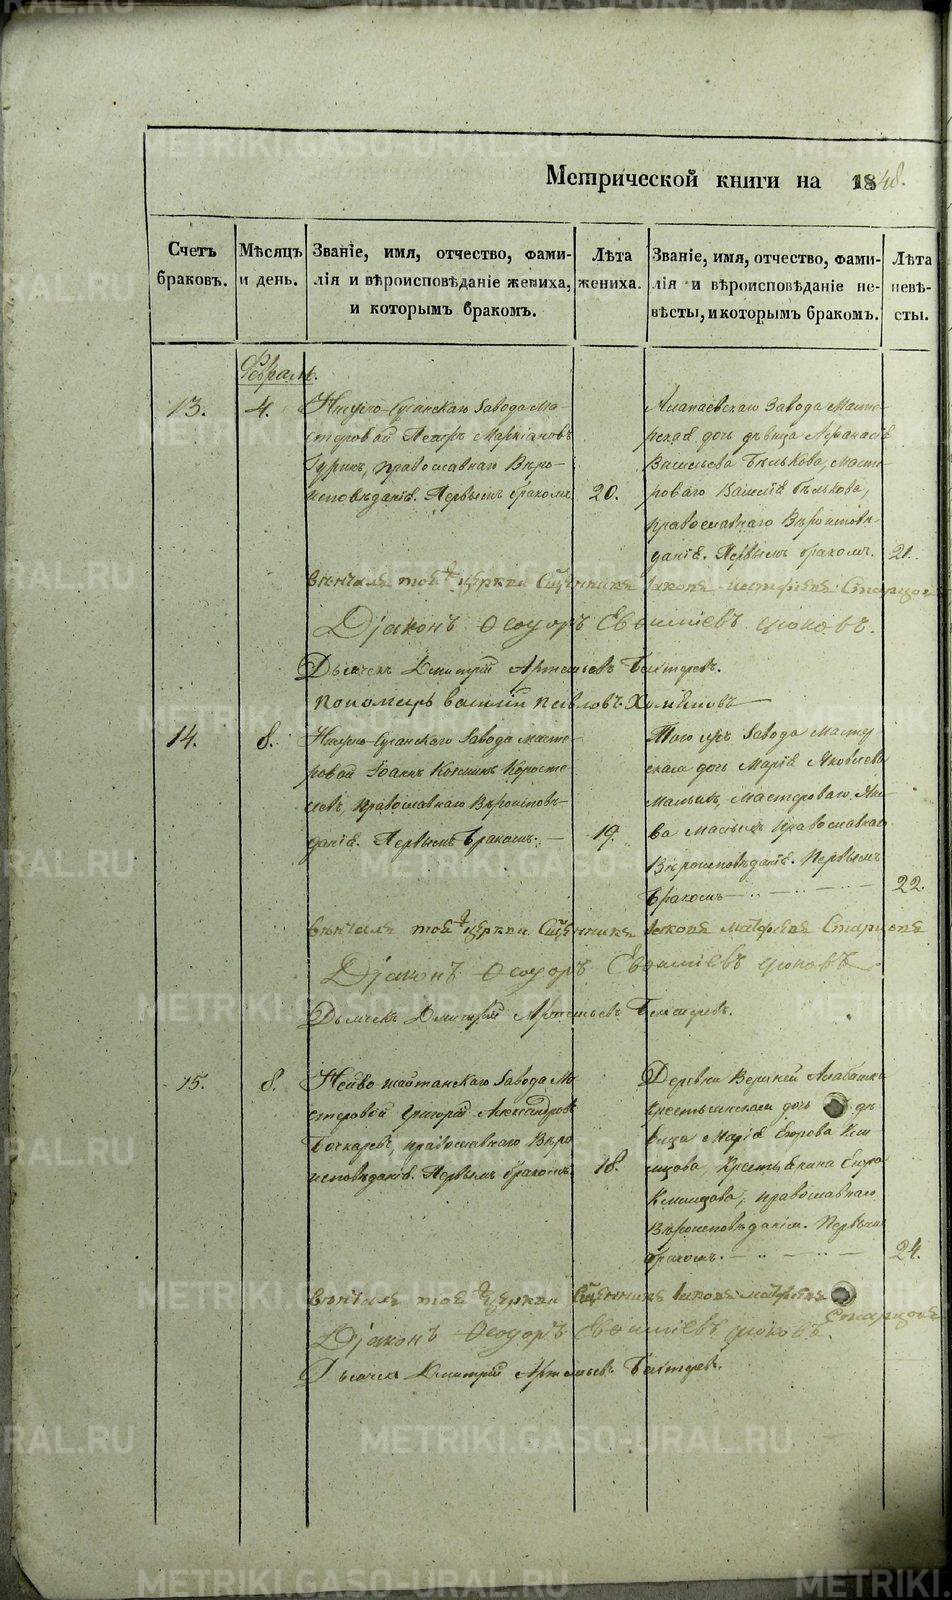 Метрической книги на 1848.
Счетъ браковъ.
Мѣсяцъ и день.
Званіе, имя, отчество, фами-
лія и вѣроисповѣданіе жениха,
и которымъ бракомъ.
Лѣта
жениха.
Званіе, имя, отчество, фами-
лія и вѣроисповѣданіе не-
вѣсты, и которымъ бракомъ.
Лѣта
невѣ-
сты.
Февраль.
13.
4.
Завода Ма-
стеровой Петръ Маркіановъ
православнаго Вѣро-
исповѣданія. Первымъ бракомъ
20.
Алапаевскаго Завода Масте-
рская дочь дѣвица
Васильева Бѣлькова, Масте-
роваго Василія Бѣлькова,
православнаго Вѣроисповѣ-
данія. Первымъ бракомъ.
21.
вѣнчалъ тоя церкви Священникъ Іаковъ
Діаконъ Ѳеодоръ Евѳиміевъ
Дьячекъ Дмитрій Артемьевъ
пономарь василій павловъ
14.
8.
Завода Масте-
ровой Іоаннъ Косминъ Коросте-
левъ, православнаго Вѣроисповѣ-
данія. Первымъ бракомъ.
19.
Того жъ Завода Масте
рская дочь Марія Яковлева
Мастероваго Яко-
ва православнаго
Вѣроисповѣданія. Первымъ
бракомъ
22.
вѣнчалъ тоя церкви Священникъ Іаковъ Старцовъ
Діаконъ Ѳеодоръ Евѳиміевъ
Дьячекъ Дмитрій Артемьевъ
15.
8.
Нейво-шайтанскаго Завода Ма
стеровой Григорій Александровъ
Бочкаревъ, православнаго Вѣро
исповѣданія. Первымъ бракомъ.
18.
Деревни Верхней Алабашки
Крестьянская дочь дѣ
вица Марія Егорова
Крестьянина Егора
православнаго
Вѣроисповѣданія. Первымъ
бракомъ.
24.
вѣнчалъ тоя церкви Священникъ Іаковъ
Старцовъ
Діаконъ Ѳеодоръ Евѳиміевъ
Дьячекъ Дмитрій Артемьевъ
METRIKI.GASO-URAL.RU